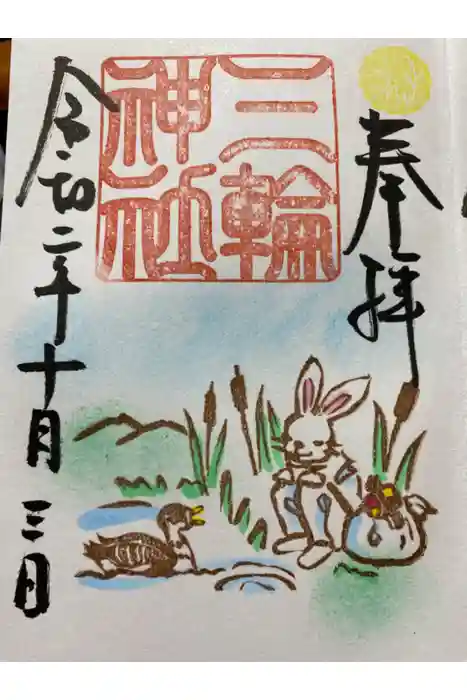 奉拝
三輪
神社
令和二年十月三日